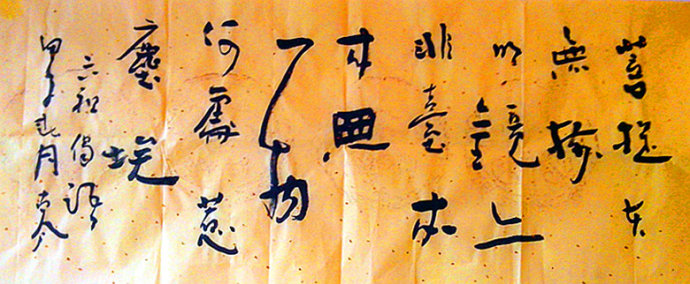 菩提本
無樹
明鏡亦
非臺本
來無
一物
何處惹
塵埃
六祖偈語
甲子月